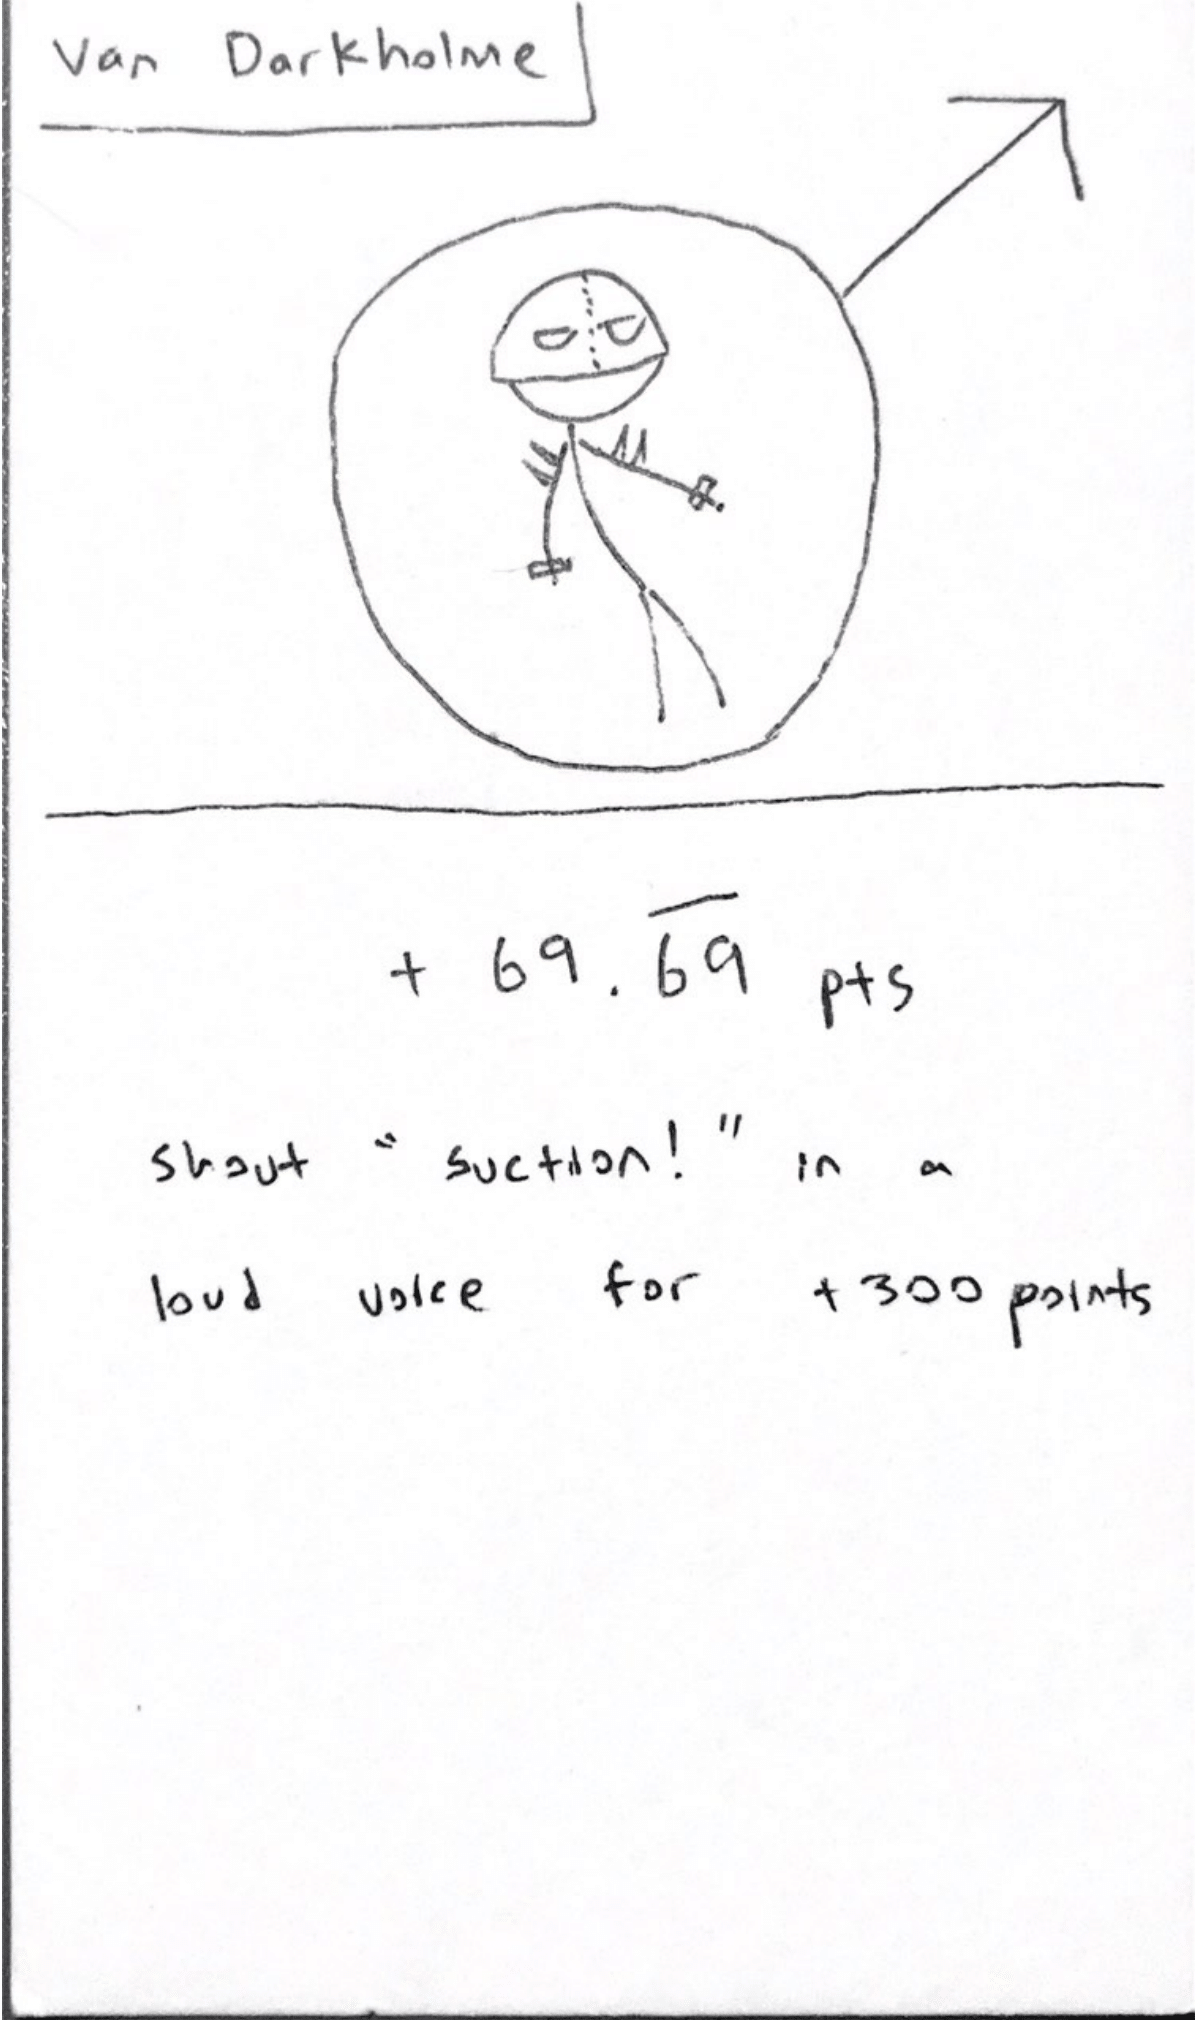 Van Darkholme
+ 69.6̅9̅ pts
shout "suction!" in a
loud voice for +300 points